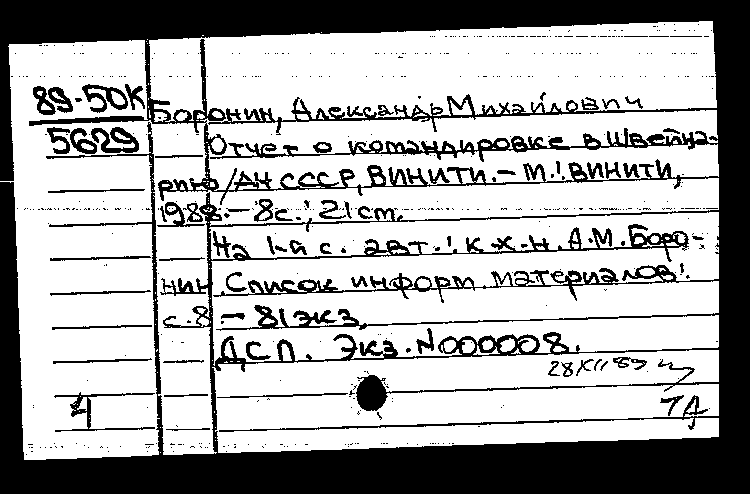 89-50К
5629
Боронин, Александр Михайлович
Отчет о командировке в Швейца-
рию / АН СССР, ВИНИТИ. - М.: ВИНИТИ,
1988. - 8с.; 21см.
На 1-й с. авт.: к.х.н. А.М. Боро-
нин. Список информ. материалов:
с.8 - 81экз.
ДСП. Экз. N000008.
28XII89
4
ТД